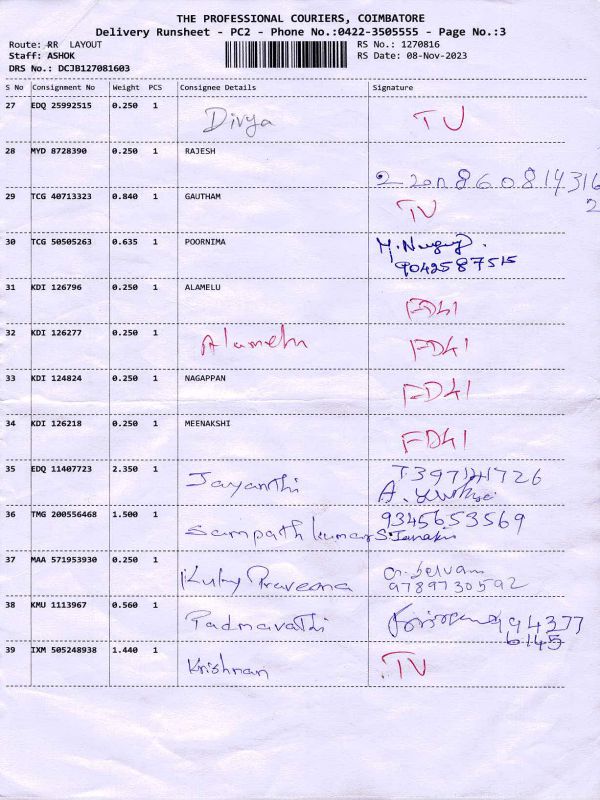 THE PROFESSIONAL COURIERS, COIMBATORE
Delivery Runsheet - PC2 - Phone No.:0422-3505555 - Page No.:3
Route: RR LAYOUT RS No.: 1270816
Staff: ASHOK RS Date: 08-Nov-2023
DRS No.: DCJB127081603
S No Consignment No Weight PCS Consignee Details Signature
27 EDQ 25992515 0.250 1 Divya TV
28 MYD 8728390 0.250 1 RAJESH
29 TCG 40713323 0.840 1 GAUTHAM TV
30 TCG 50505263 0.635 1 POORNIMA
9042587515
31 KDI 126796 0.250 1 ALAMELU FD41
32 KDI 126277 0.250 1 Alamelu FD41
33 KDI 124824 0.250 1 NAGAPPAN FD41
34 KDI 126218 0.250 1 MEENAKSHI FD41
35 EDQ 11407723 2.350 1 Jayanthi
36 TMG 200556468 1.500 1 Sampath kumar 9345653569
S. Janaki
37 MAA 571953930 0.250 1 Kuby Praveena G. Selvam
9789730592
38 KMU 1113967 0.560 1 Padmavathi 994377
6145
39 IXM 505248938 1.440 1 Krishnan TV